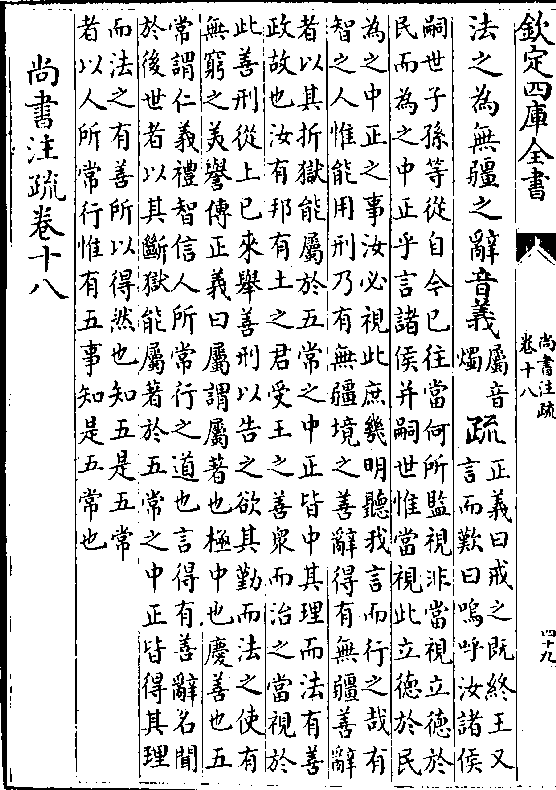 欽定四庫全書
尚書注疏
卷十八
四十九
法之為無疆之辭音義
屬音
燭
疏
正義曰戒之既終王又
言而歎曰嗚呼汝諸侯
嗣世子孫等從自今已往當何所監視非當視立德於
民而為之中正乎言諸侯并嗣世惟當視此立德於民
為之中正之事汝必視此庶幾明聽我言而行之哉有
智之人惟能用刑乃有無疆境之善辭得有無疆善辭
者以其折獄能屬於五常之中正皆中其理而法有善
政故也汝有邦有土之君受王之善衆而治之當視於
此善刑從上已來舉善刑以告之欲其勤而法之使有
無窮之美譽傳正義曰屬謂屬著也極中也慶善也五
常謂仁義禮智信人所常行之道也言得有善辭名聞
於後世者以其斷獄能屬著於五常之中正皆得其理
而法之有善所以得然也知五是五常
者以人所常行惟有五事知是五常也
尚書注疏卷十八